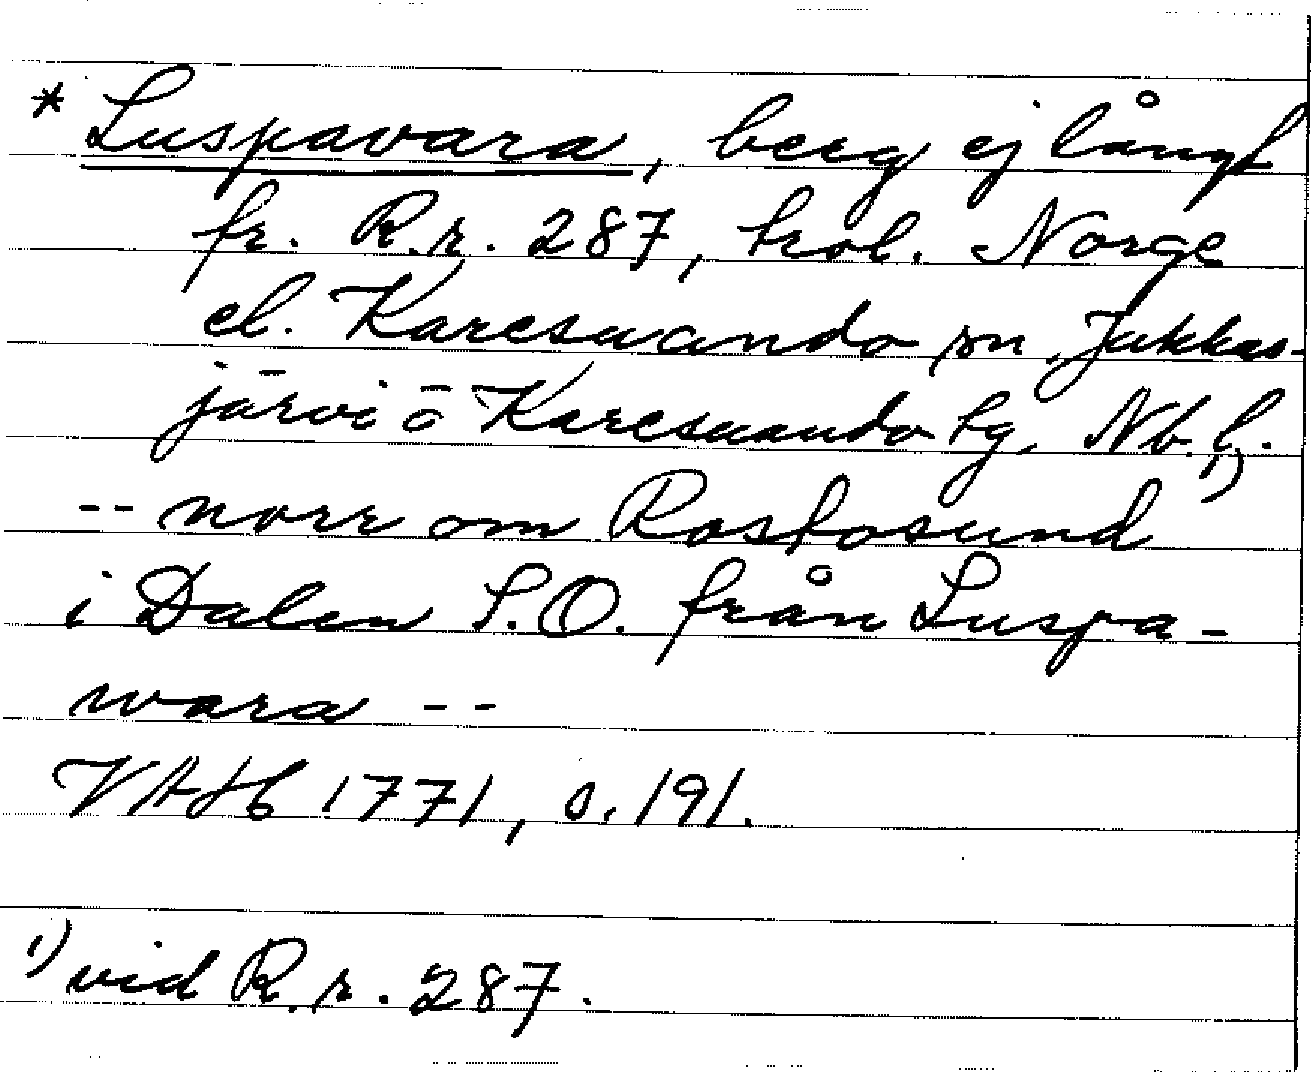 * Luspavara, berg ej långt
fr. R.r. 287, trol. Norge
el. Karesuando sn, Jukkas-
järvi o Karesuando tg, Nb. l.
-- norr om Rostosund 1)
i Dalen S.O. från Luspa-
wara --
VAH 1771, s. 191.
1) vid R.r. 287.